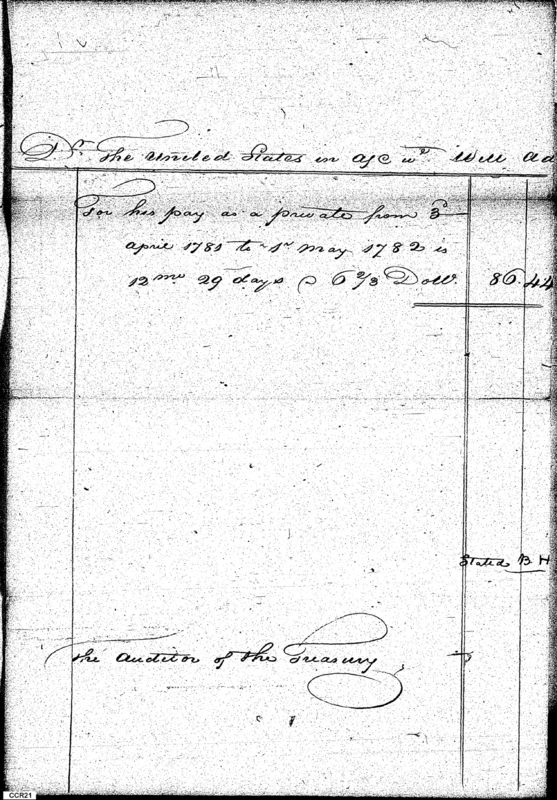 Dr. The United States in a/c wt. Will Ad
For his pay as a private from 3d
april 1781 to 1st may 1782 is
12 mo 29 days @ 6 2/3 Dolls. 86.44
Stated B H
The Auditor of the Treasury
CCR21